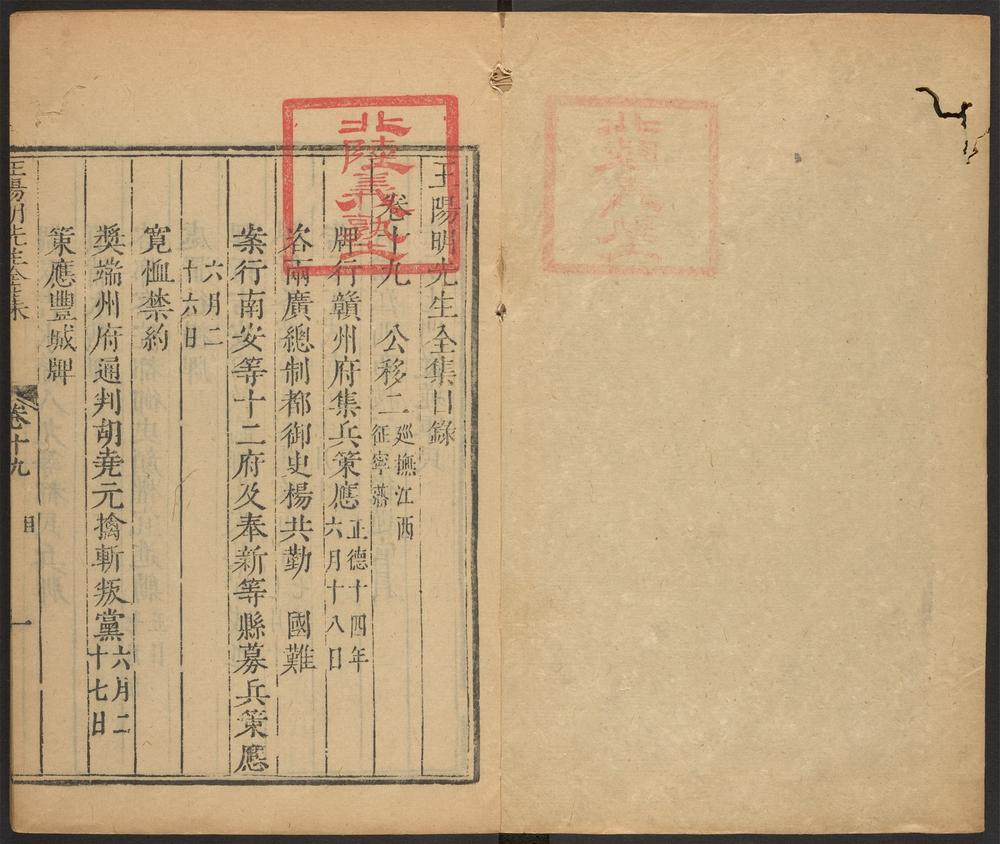 王陽明先生全集目錄
卷十九 公移二 廵撫江西 征寧藩
牌行贛州府集兵策應 正德十四年 六月十八日
咨兩廣總制都御史楊共勤 國難
案行南安等十二府及奉新等縣募兵策應
六月二 十六日
寬恤禁約
奬瑞州府通判胡堯元擒斬叛黨 六月二 十七日
策應豐城牌
王陽明先生全集 卷十九 目 一
北陸義塾